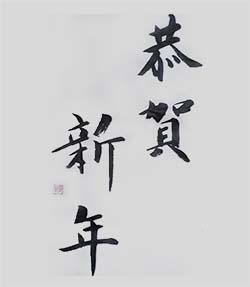 恭賀
新年